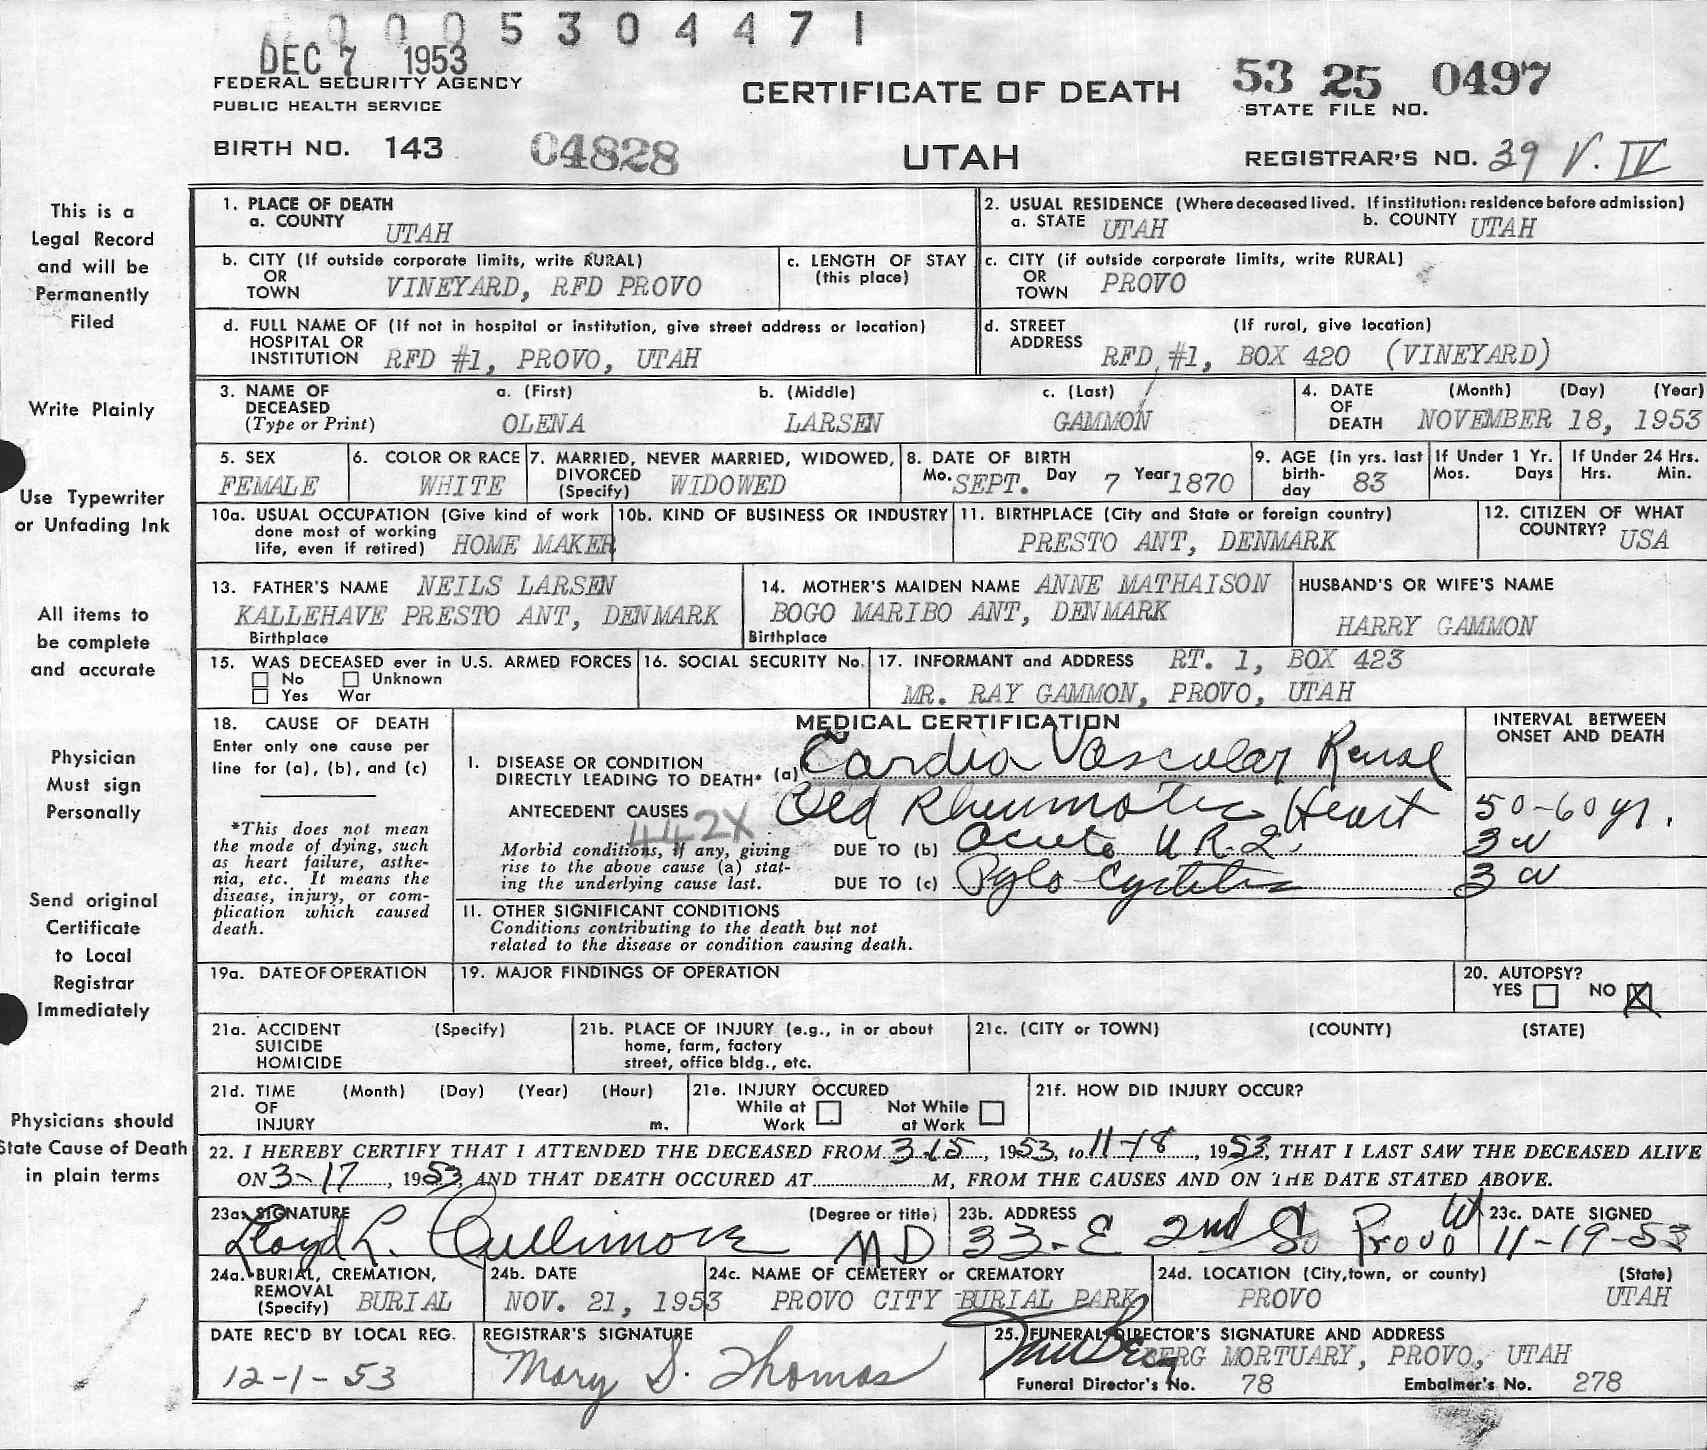 0005304471
DEC 7 1953
FEDERAL SECURITY AGENCY
PUBLIC HEALTH SERVICE
CERTIFICATE OF DEATH
53 25 0497
STATE FILE NO.
BIRTH NO. 143 04828
UTAH
REGISTRAR'S NO. 39 V. IV
This is a
Legal Record
and will be
Permanently
Filed
Write Plainly
Use Typewriter
or Unfading Ink
All items to
be complete
and accurate
Physician
Must sign
Personally
Send original
Certificate
to Local
Registrar
Immediately
Physicians should
State Cause of Death
in plain terms
1. PLACE OF DEATH
a. COUNTY UTAH
2. USUAL RESIDENCE (Where deceased lived. If institution: residence before admission)
a. STATE UTAH b. COUNTY UTAH
b. CITY (If outside corporate limits, write RURAL)
OR
TOWN VINEYARD, RFD PROVO
c. LENGTH OF STAY
(this place)
c. CITY (if outside corporate limits, write RURAL)
OR
TOWN PROVO
d. FULL NAME OF (If not in hospital or institution, give street address or location)
HOSPITAL OR
INSTITUTION RFD #1, PROVO, UTAH
d. STREET (If rural, give location)
ADDRESS RFD #1, BOX 420 (VINEYARD)
3. NAME OF a. (First) b. (Middle) c. (Last)
DECEASED
(Type or Print) OLENA LARSEN GAMMON
4. DATE (Month) (Day) (Year)
OF
DEATH NOVEMBER 18, 1953
5. SEX
FEMALE
6. COLOR OR RACE
WHITE
7. MARRIED, NEVER MARRIED, WIDOWED,
DIVORCED
(Specify) WIDOWED
8. DATE OF BIRTH
Mo. SEPT. Day 7 Year 1870
9. AGE (in yrs. last
birth-
day 83
If Under 1 Yr.
Mos. Days
If Under 24 Hrs.
Hrs. Min.
10a. USUAL OCCUPATION (Give kind of work
done most of working
life, even if retired) HOME MAKER
10b. KIND OF BUSINESS OR INDUSTRY
11. BIRTHPLACE (City and State or foreign country)
PRESTO ANT, DENMARK
12. CITIZEN OF WHAT
COUNTRY? USA
13. FATHER'S NAME NEILS LARSEN
KALLEHAVE PRESTO ANT, DENMARK
Birthplace
14. MOTHER'S MAIDEN NAME ANNE MATHAISON
BOGO MARIBO ANT, DENMARK
Birthplace
HUSBAND'S OR WIFE'S NAME
HARRY GAMMON
15. WAS DECEASED ever in U.S. ARMED FORCES
No Unknown
Yes War
16. SOCIAL SECURITY No.
17. INFORMANT and ADDRESS RT. 1, BOX 423
MR. RAY GAMMON, PROVO, UTAH
18. CAUSE OF DEATH
Enter only one cause per
line for (a), (b), and (c)
*This does not mean
the mode of dying, such
as heart failure, asthe-
nia, etc. It means the
disease, injury, or com-
plication which caused
death.
MEDICAL CERTIFICATION
INTERVAL BETWEEN
ONSET AND DEATH
I. DISEASE OR CONDITION
DIRECTLY LEADING TO DEATH* (a) Cardio Vascular Renal
ANTECEDENT CAUSES Old Rheumatic Heart 50-60 yr.
442X
Morbid conditions, if any, giving DUE TO (b) Acute U.R.2. 3 w
rise to the above cause (a) stat-
ing the underlying cause last. DUE TO (c) Pylo Cystitis 3 w
II. OTHER SIGNIFICANT CONDITIONS
Conditions contributing to the death but not
related to the disease or condition causing death.
19a. DATE OF OPERATION
19. MAJOR FINDINGS OF OPERATION
20. AUTOPSY?
YES NO X
21a. ACCIDENT (Specify)
SUICIDE
HOMICIDE
21b. PLACE OF INJURY (e.g., in or about
home, farm, factory
street, office bldg., etc.
21c. (CITY or TOWN) (COUNTY) (STATE)
21d. TIME (Month) (Day) (Year) (Hour)
OF
INJURY m.
21e. INJURY OCCURED
While at Not While
Work at Work
21f. HOW DID INJURY OCCUR?
22. I HEREBY CERTIFY THAT I ATTENDED THE DECEASED FROM 3-15, 1953, to 11-18, 1953, THAT I LAST SAW THE DECEASED ALIVE
ON 3-17, 1953, AND THAT DEATH OCCURED AT M, FROM THE CAUSES AND ON THE DATE STATED ABOVE.
23a. SIGNATURE (Degree or title)
Lloyd L. Cullimore MD
23b. ADDRESS
33-E 2nd So Provo Ut
23c. DATE SIGNED
11-19-53
24a. BURIAL, CREMATION,
REMOVAL
(Specify) BURIAL
24b. DATE
NOV. 21, 1953
24c. NAME OF CEMETERY or CREMATORY
PROVO CITY BURIAL PARK
24d. LOCATION (City, town, or county) (State)
PROVO UTAH
DATE REC'D BY LOCAL REG.
12-1-53
REGISTRAR'S SIGNATURE
Mary S. Thomas
25. FUNERAL DIRECTOR'S SIGNATURE AND ADDRESS
BERG MORTUARY, PROVO, UTAH
Funeral Director's No. 78 Embalmer's No. 278